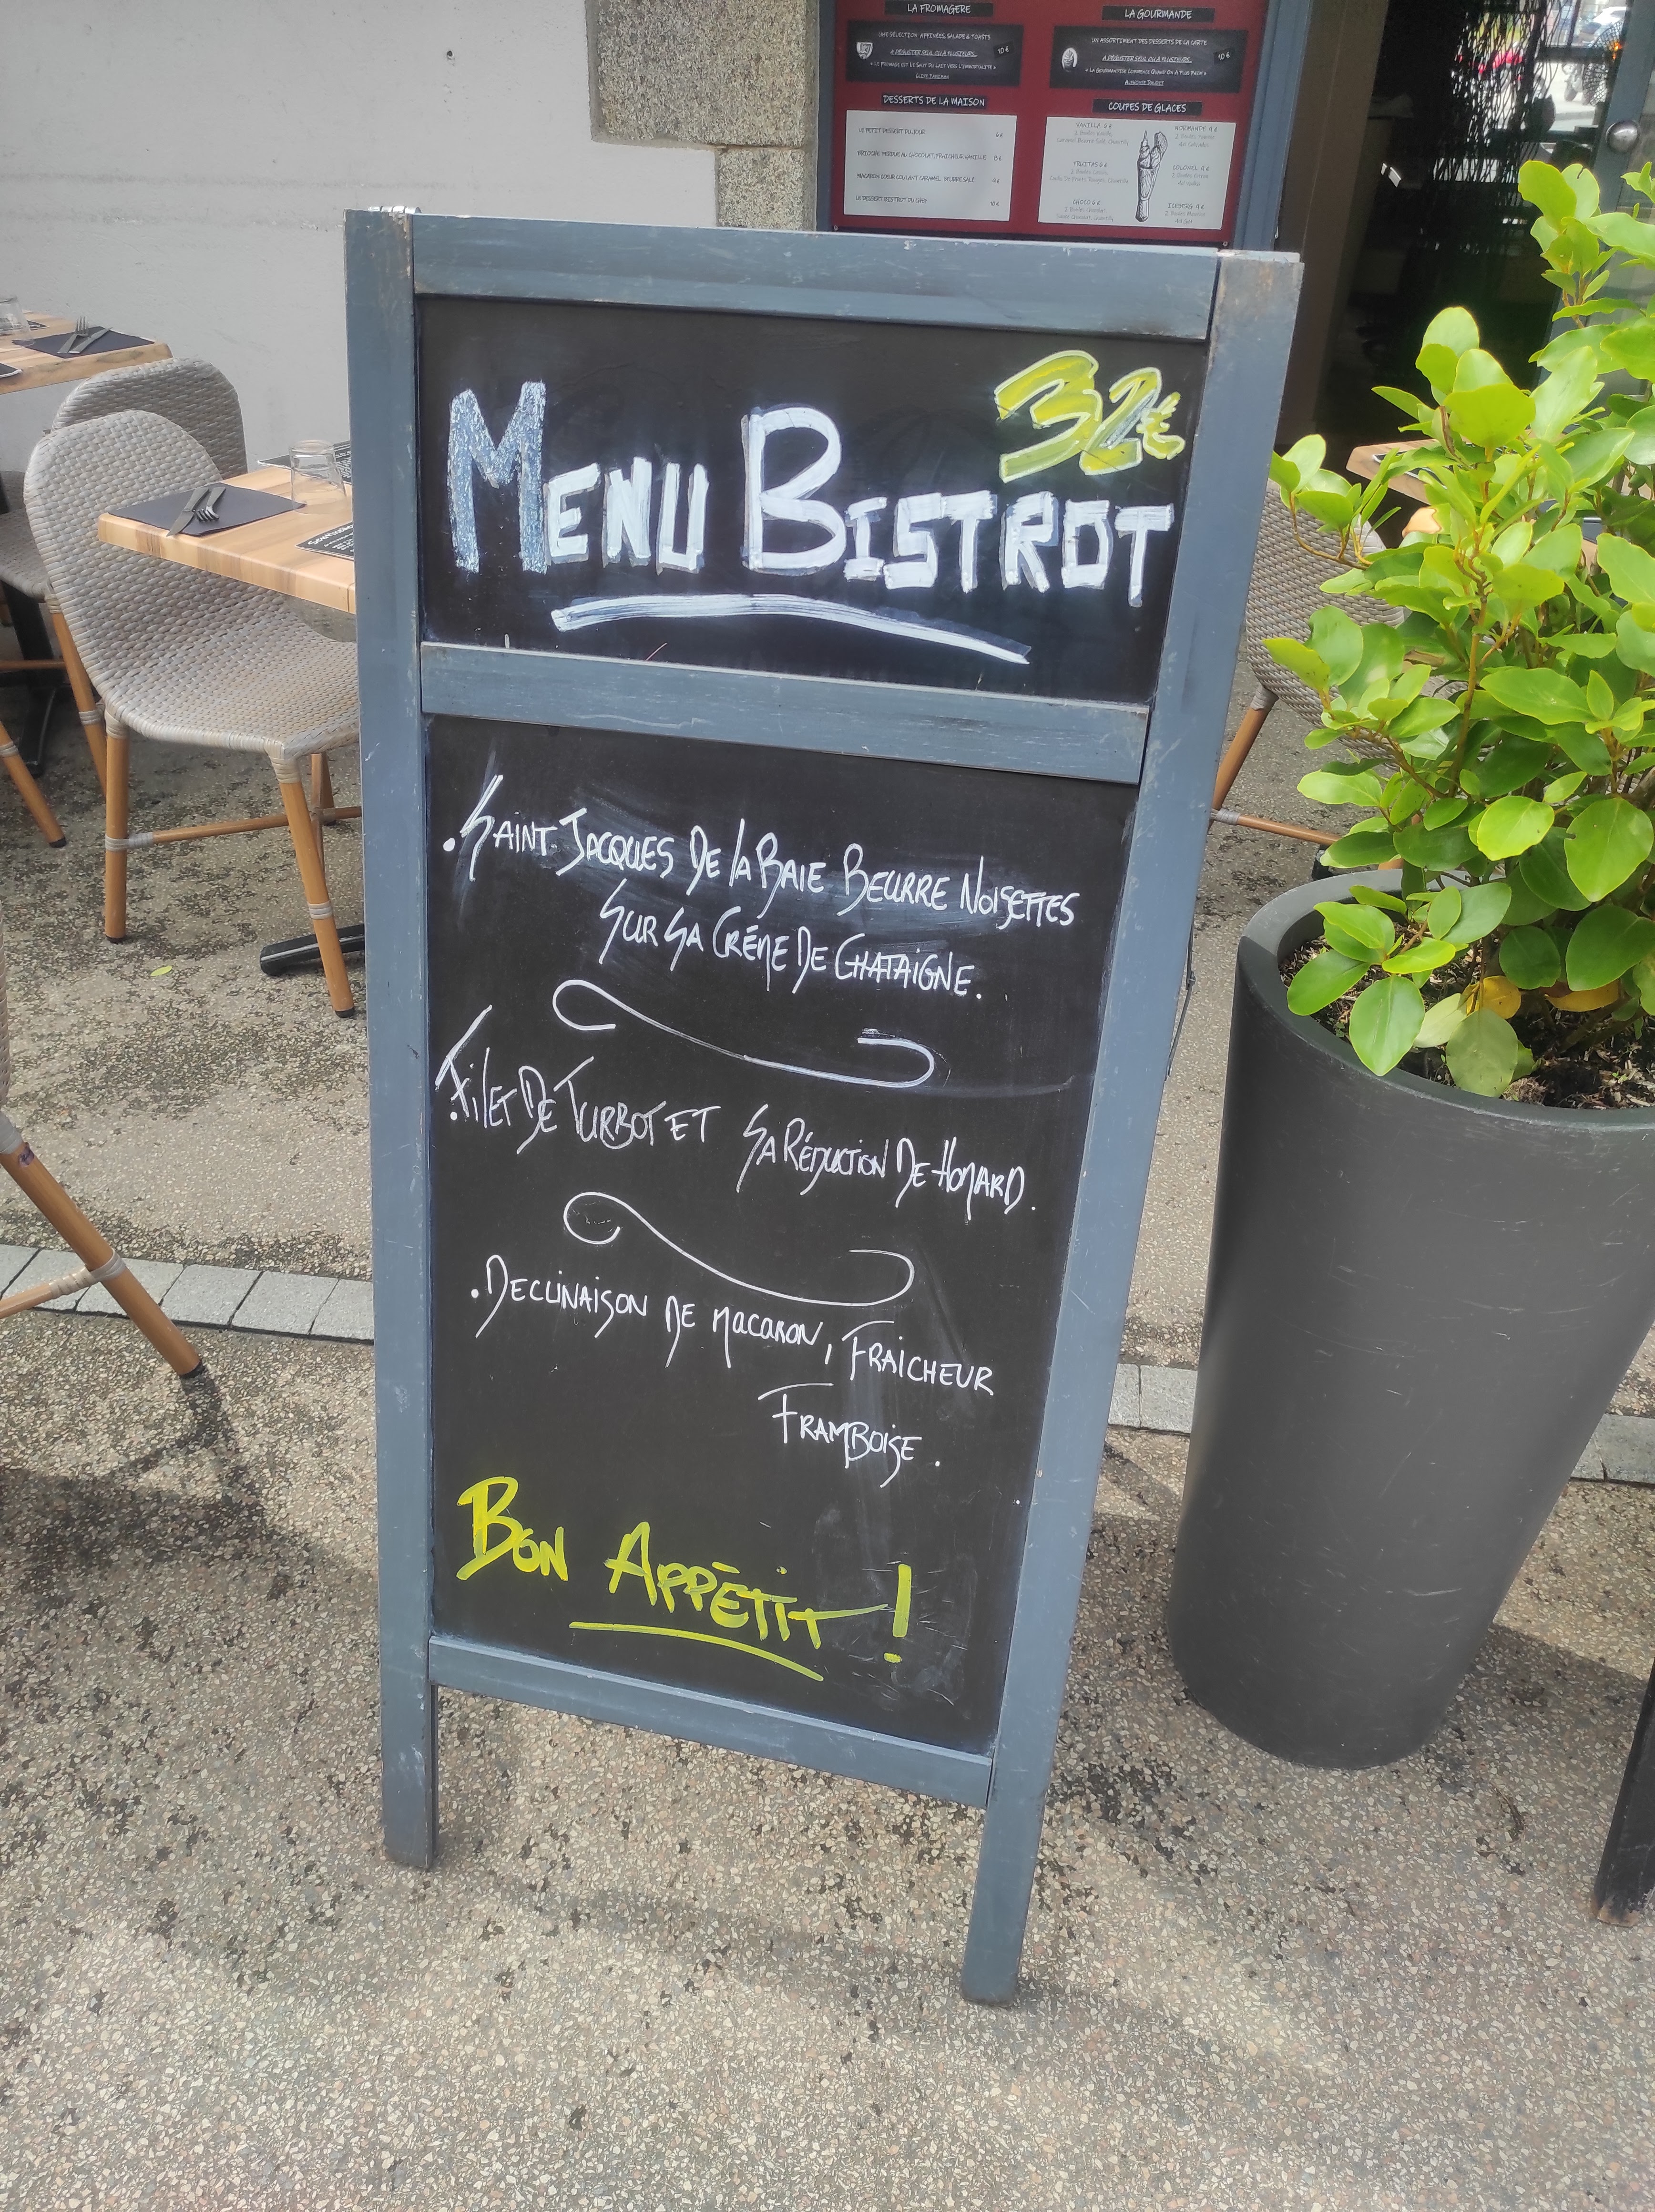 LA FROMAGERE
UNE SELECTION AFFINEES, SALADE & TOASTS
A DEGUSTER SEUL OU À PLUSIEURS...
10 €
« LE FROMAGE EST LE SAUT DU LAIT VERS L'IMMORTALITE »
CLIFF FADIMAN
DESSERTS DE LA MAISON
LE PETIT DESSERT DU JOUR 6 €
BRIOCHE PERDUE AU CHOCOLAT, FRAICHEUR VANILLE 8 €
MACARON COEUR COULANT CARAMEL BEURRE SALE 9 €
LE DESSERT BISTROT DU CHEF 10 €
LA GOURMANDE
UN ASSORTIMENT DES DESSERTS DE LA CARTE
A DEGUSTER SEUL OU À PLUSIEURS...
10 €
« LA GOURMANDISE COMMENCE QUAND ON A PLUS FAIM »
ALPHONSE DAUDET
COUPES DE GLACES
VANILLA 6 €
FRUITAS 6 €
CHOCO 6 €
NORMANDE 9 €
COLONEL 9 €
ICEBERG 9 €
32€
MENU BISTROT
.SAINT-JACQUES DE LA BAIE BEURRE NOISETTES
SUR SA CRÉME DE CHATAIGNE.
.FILET DE TURBOT ET SA RÉDUCTION DE HOMARD.
.DECLINAISON DE MACARON, FRAICHEUR
FRAMBOISE.
BON APPÉTIT !